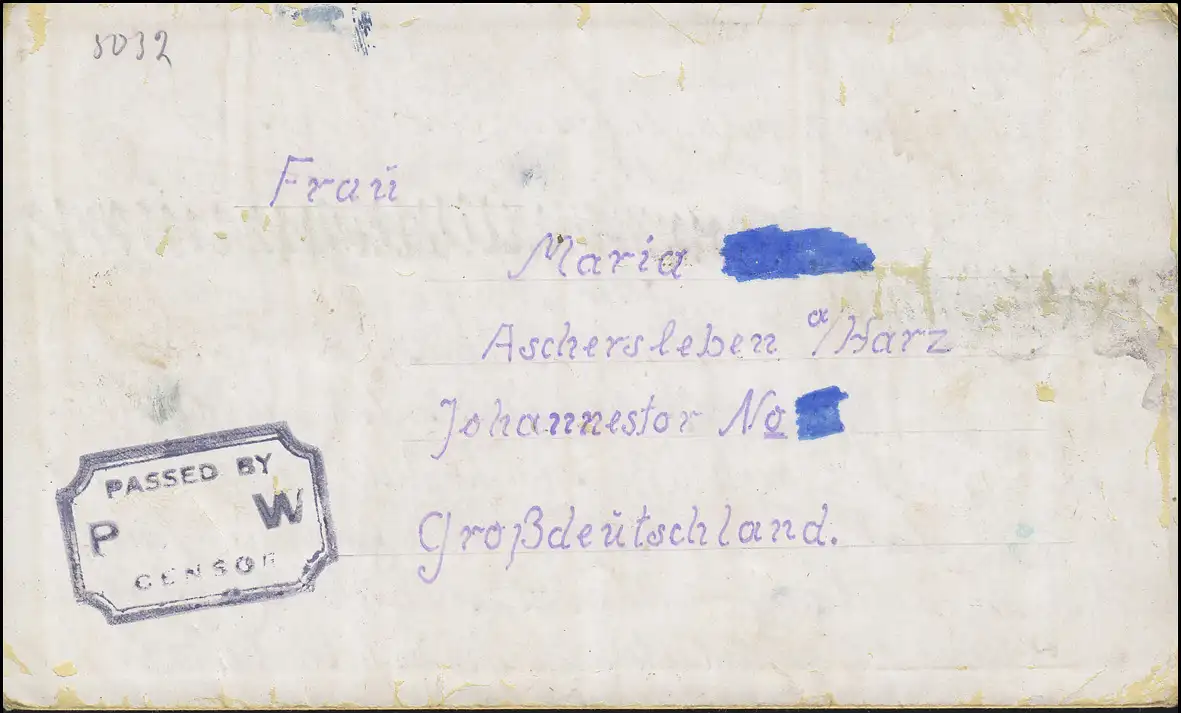 5032
Frau
Maria
Aschersleben a/Harz
Johannestor No
Großdeutschland.
PASSED BY
P W
CENSOR